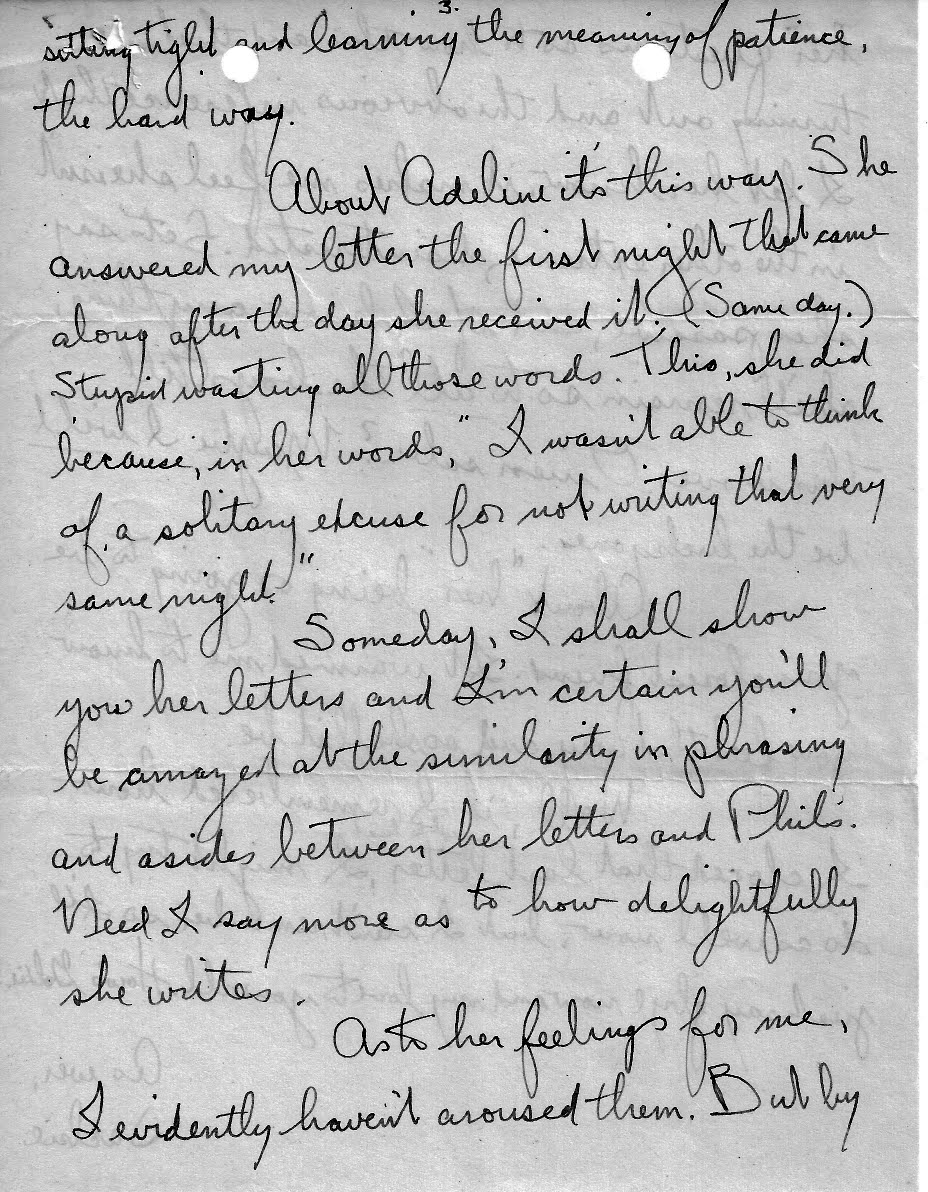 3.
sitting tight and learning the meaning of patience,
the hard way.
About Adeline it's this way. She
answered my letter the first night that came
along after the day she received it. (Same day.)
Stupid wasting all those words. This, she did
because, in her words, "I wasn't able to think
of a solitary excuse for not writing that very
same night."
Someday, I shall show
you her letters and I'm certain you'll
be amazed at the similarity in phrasing
and asides between her letters and Phil's.
Need I say more as to how delightfully
she writes.
As to her feelings for me,
I evidently haven't aroused them. But by